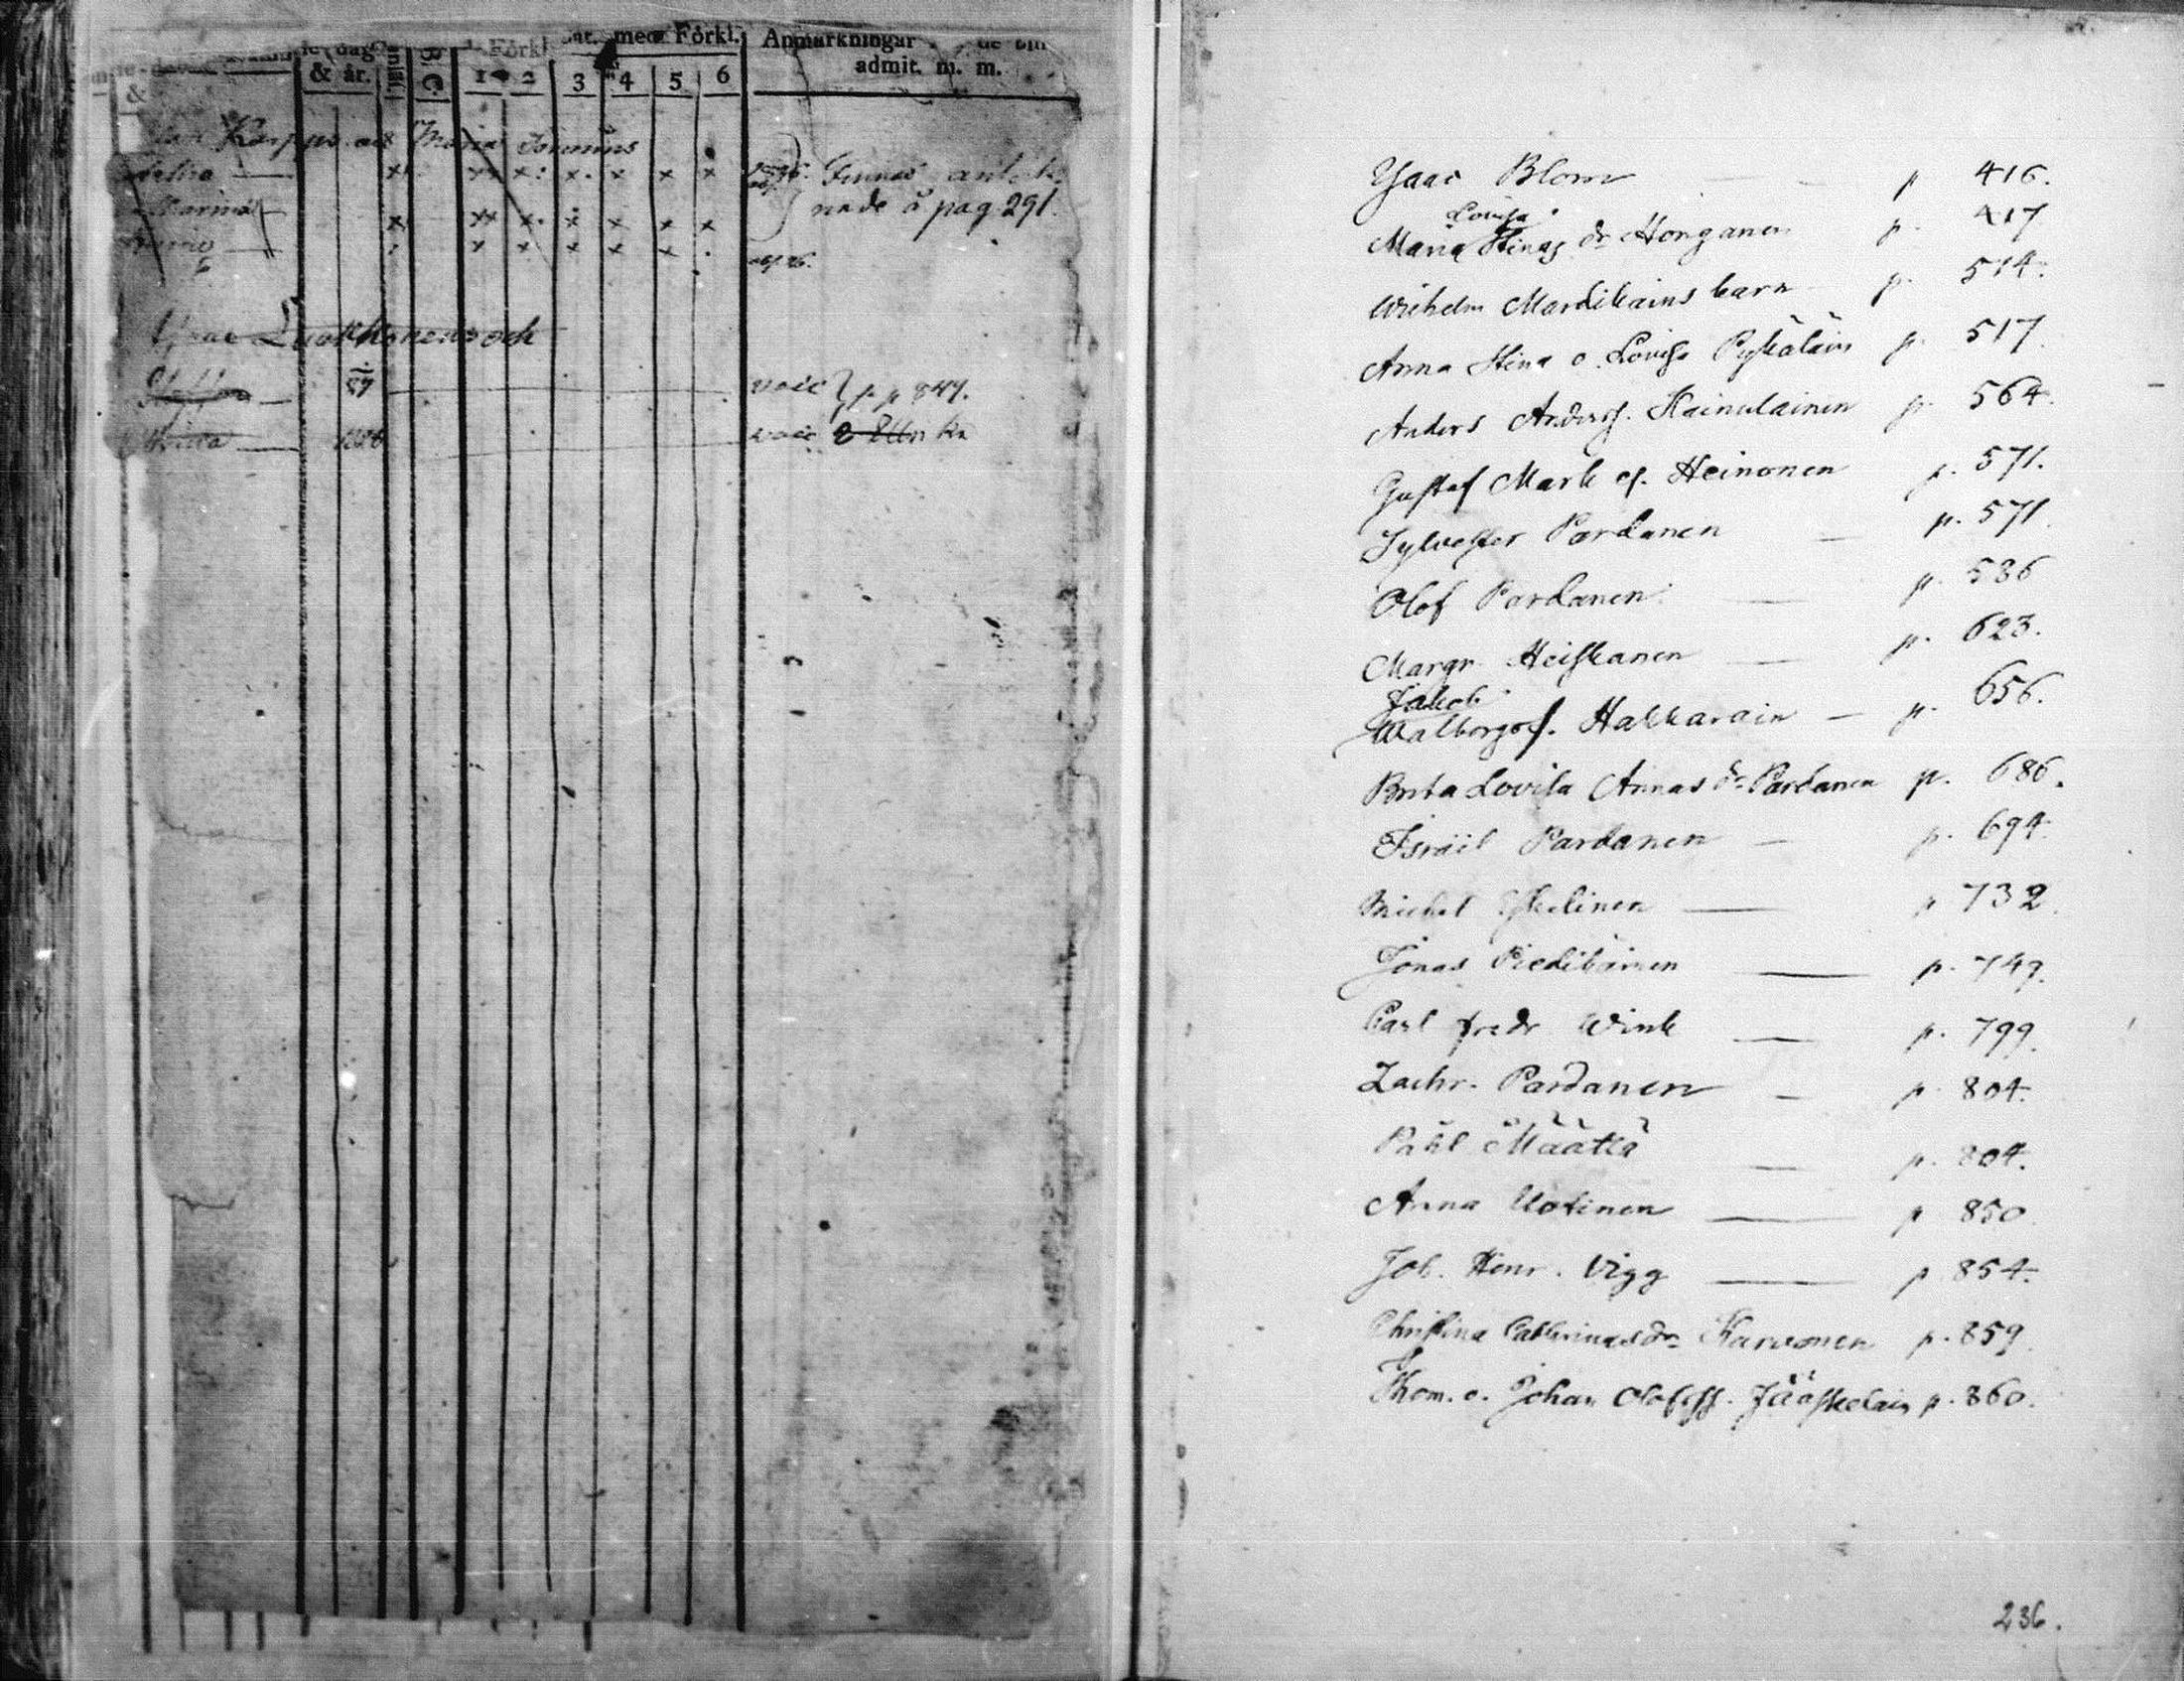 & år. B. C. Förkl. med Förkl. Anmärkningar
1 2 3 4 5 6 admit. m. m.
Karppi och Maria
Finnas anteck-
nade å pag. 291.
Luukkonens och
87 vide p. p 847.
Isaac Blom p 416.
Lovisa
Maria Stinas dr Honganen p. 417
Wilhelm Mardikains barn p. 514.
Anna Stina o. Lovisa Pykäläin p. 517
Anders Anderss. Kainulainen p. 564.
Gustaf Mark os. Heinonen p. 571.
Sylvester Pardanen p. 571.
Olof Pardanen p. 586
Margr. Heiskanen p. 623.
Jakob
Walborgss. Hakkarain p. 656.
Brita Lovisa Annas dr Pardanen p. 686.
Israël Pardanen p. 694.
Michel Eskelinen p 732.
Jonas Piedikäinen p. 749.
Carl Fredr Wink p. 799.
Zachr. Pardanen p. 804.
Påhl Määttä p. 804.
Anna Uotinen p 850.
Joh. Henr. Vigg p 854.
Christina Catharinas dr Karvonen p. 859
Thom. o. Johan Olofss. Jääskelain p. 860.
236.